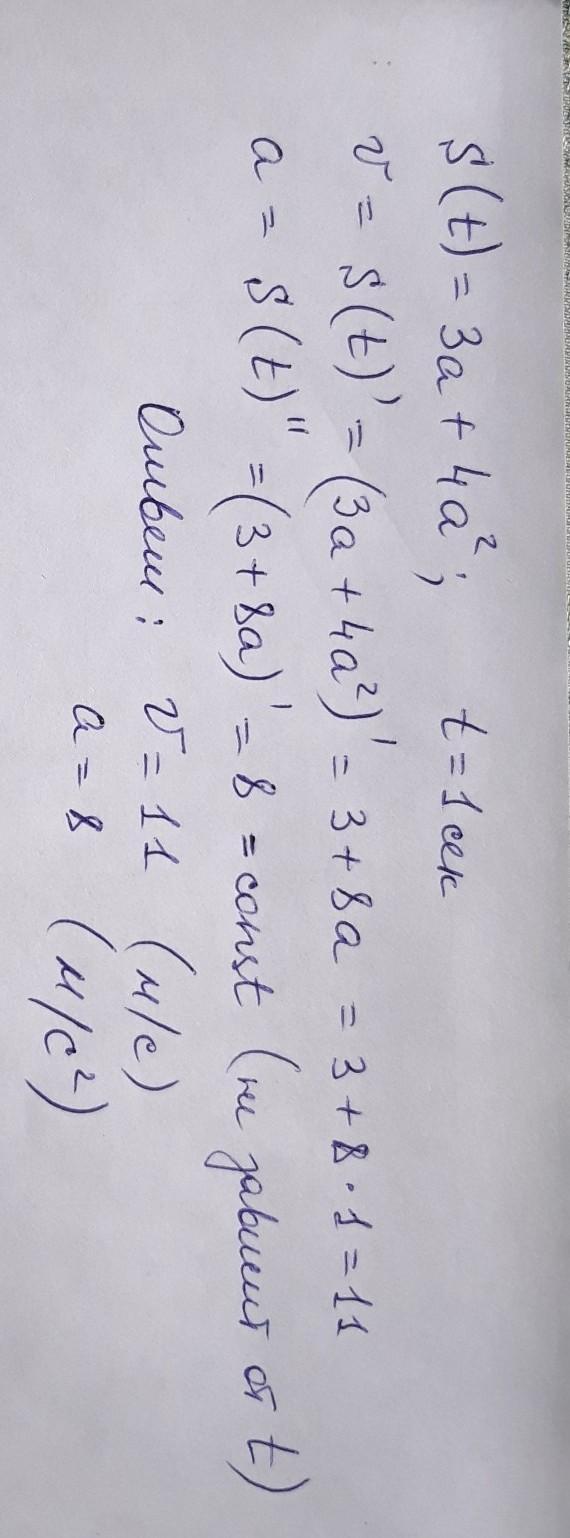 S(t) = 3a + 4a²; t = 1 сек
v = S(t)' = (3a + 4a²)' = 3 + 8a = 3 + 8 · 1 = 11
a = S(t)'' = (3 + 8a)' = 8 = const (не зависит от t)
Ответ: v = 11 (м/с)
a = 8 (м/с²)